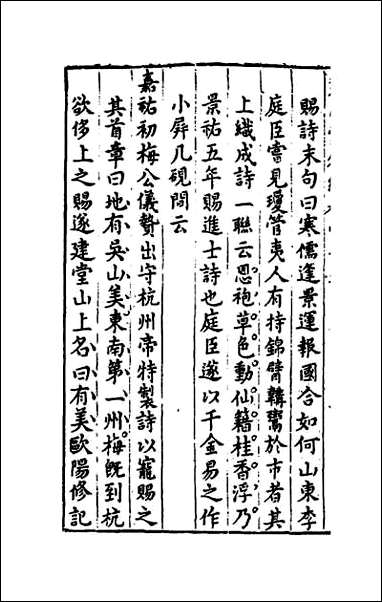 賜詩末句曰寒儒逢景運報國合如何山東李
庭臣嘗見瓊管夷人有持錦臂韝鬻於市者其
上織成詩一聯云恩袍草色動仙籍桂香浮乃
景祐五年賜進士詩也庭臣遂以千金易之作
小屏几硯間云
嘉祐初梅公儀贄出守杭州帝特製詩以寵賜之
其首章曰地有吳山美東南第一州梅既到杭
欲侈上之賜遂建堂山上名曰有美歐陽修記